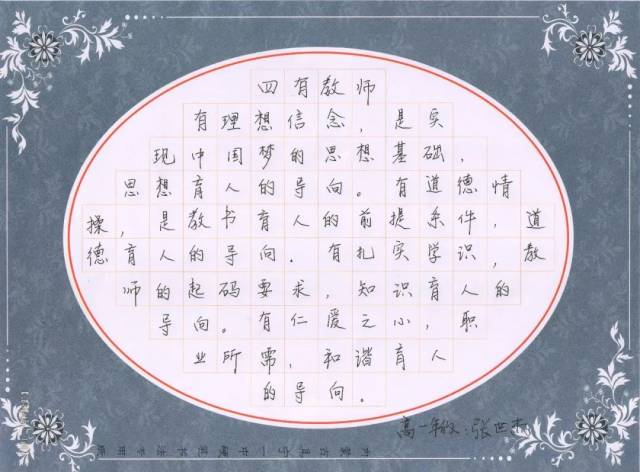 四有教师
有理想信念，是实
现中国梦的思想基础，
思想育人的导向。有道德情
操，是教书育人的前提条件，道
德育人的导向。有扎实学识，教
师的起码要求，知识育人的
导向。有仁爱之心，职
业所需，和谐育人
的导向。
高一年级：张世杰